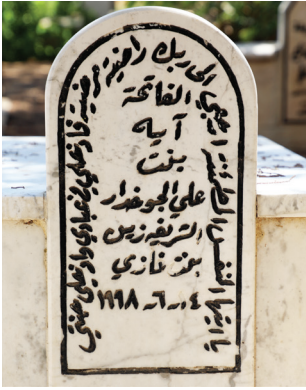 يا ايتها النفس المطمئنة ارجعي الى ربك راضية مرضية فادخلي في عبادي وادخلي جنتي
الفاتحة
آيه
بنت
علي الجوخدار
الشريفه زين
بنت غازي
١٩٩٨-٦-٤